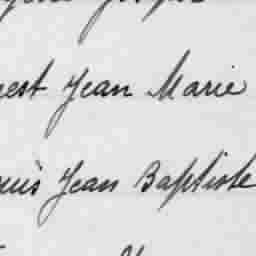 est Jean Marie
uis Jean Baptiste